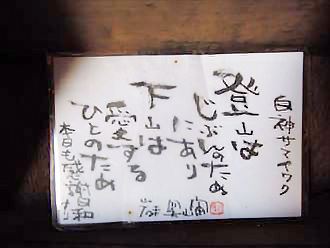 白神サマヤク
登山は
じぶんのため
にあり
下山は
愛する
ひとのため
本日も感謝日和